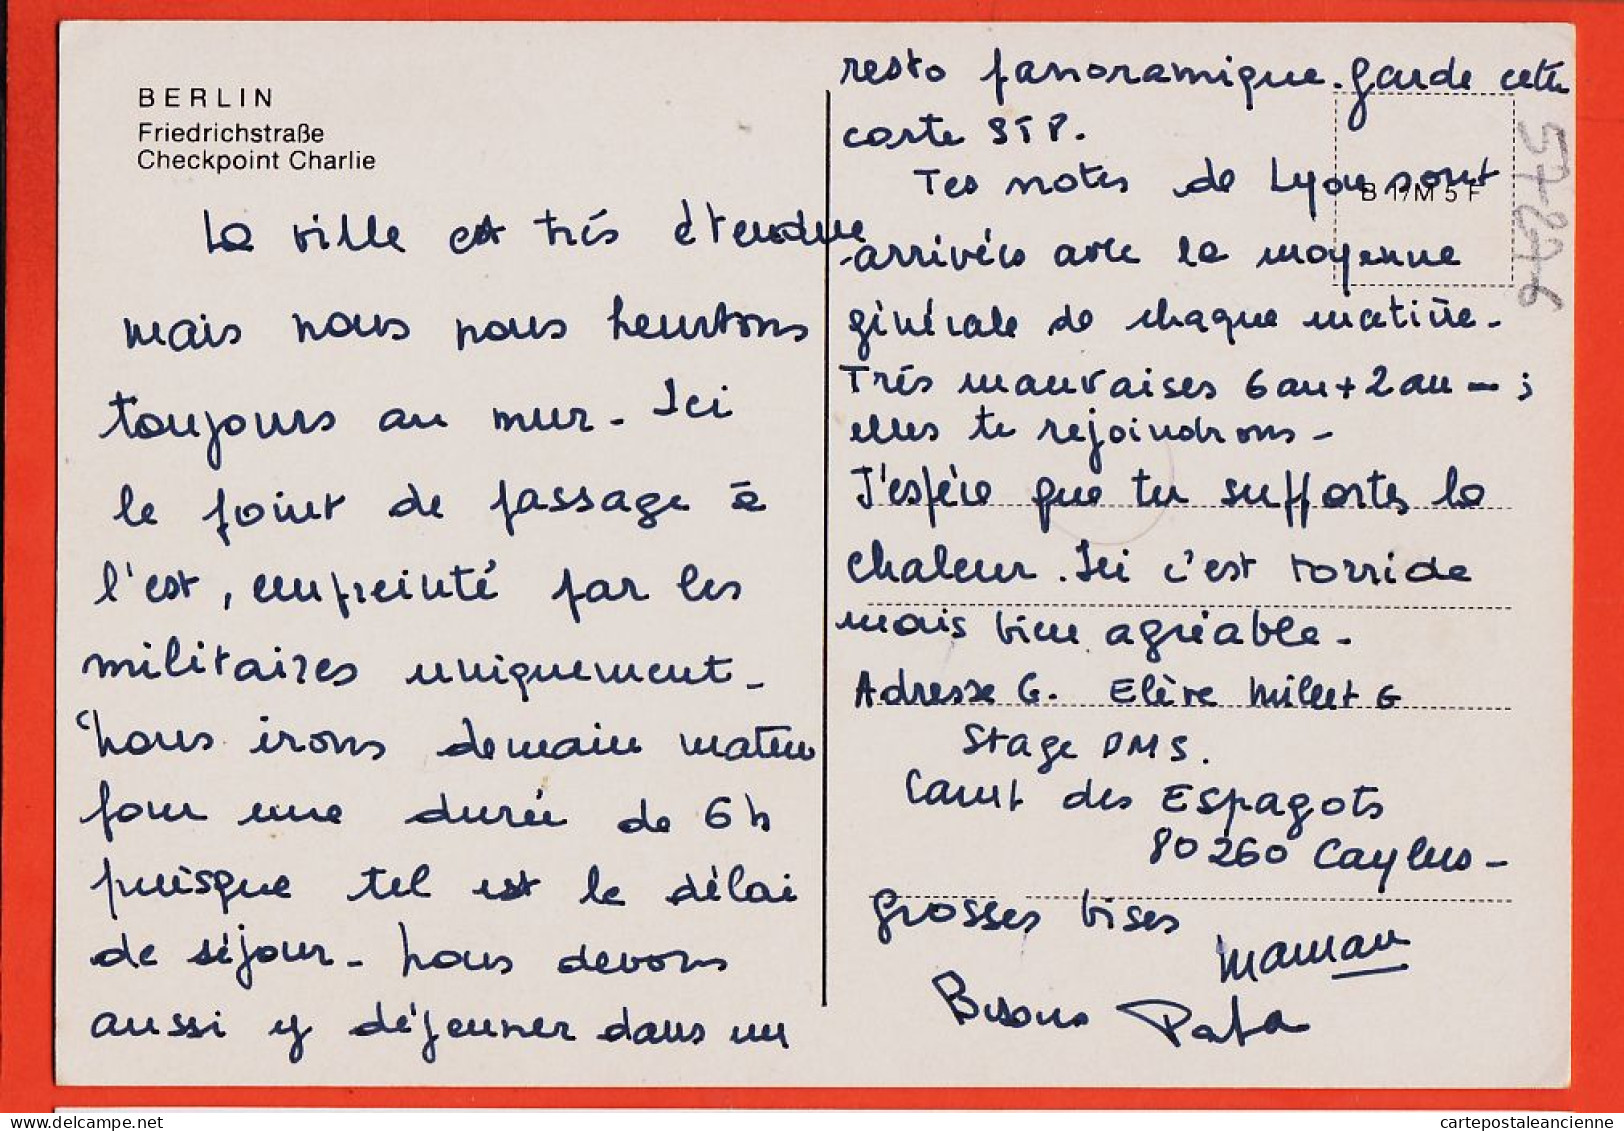 BERLIN
Friedrichstraße
Checkpoint Charlie
La ville est trés étendue
mais nous nous heurtons
toujours au mur - Ici
le point de passage à
l'est, empreinté par les
militaires uniquement -
Nous irons demain matin
pour une durée de 6h
puisque tel est le délai
de séjour - Nous devons
aussi y déjeuner dans un
resto panoramique. Garde cette
carte STP.
Tes notes de Lyon sont
arrivées avec la moyenne
générale de chaque matière -
Trés mauvaises 6 au + 2 au - ;
elles te rejoindrons -
J'espère que tu supportes la
chaleur. Ici c'est torride
mais bien agréable -
Adresse G. Elève Millet G
Stage PMS.
Camp des Espagots
80260 Caylus -
grosses bises
Maman
Bisous Papa
B 17M 5 F
57276
cartepostaleancienne